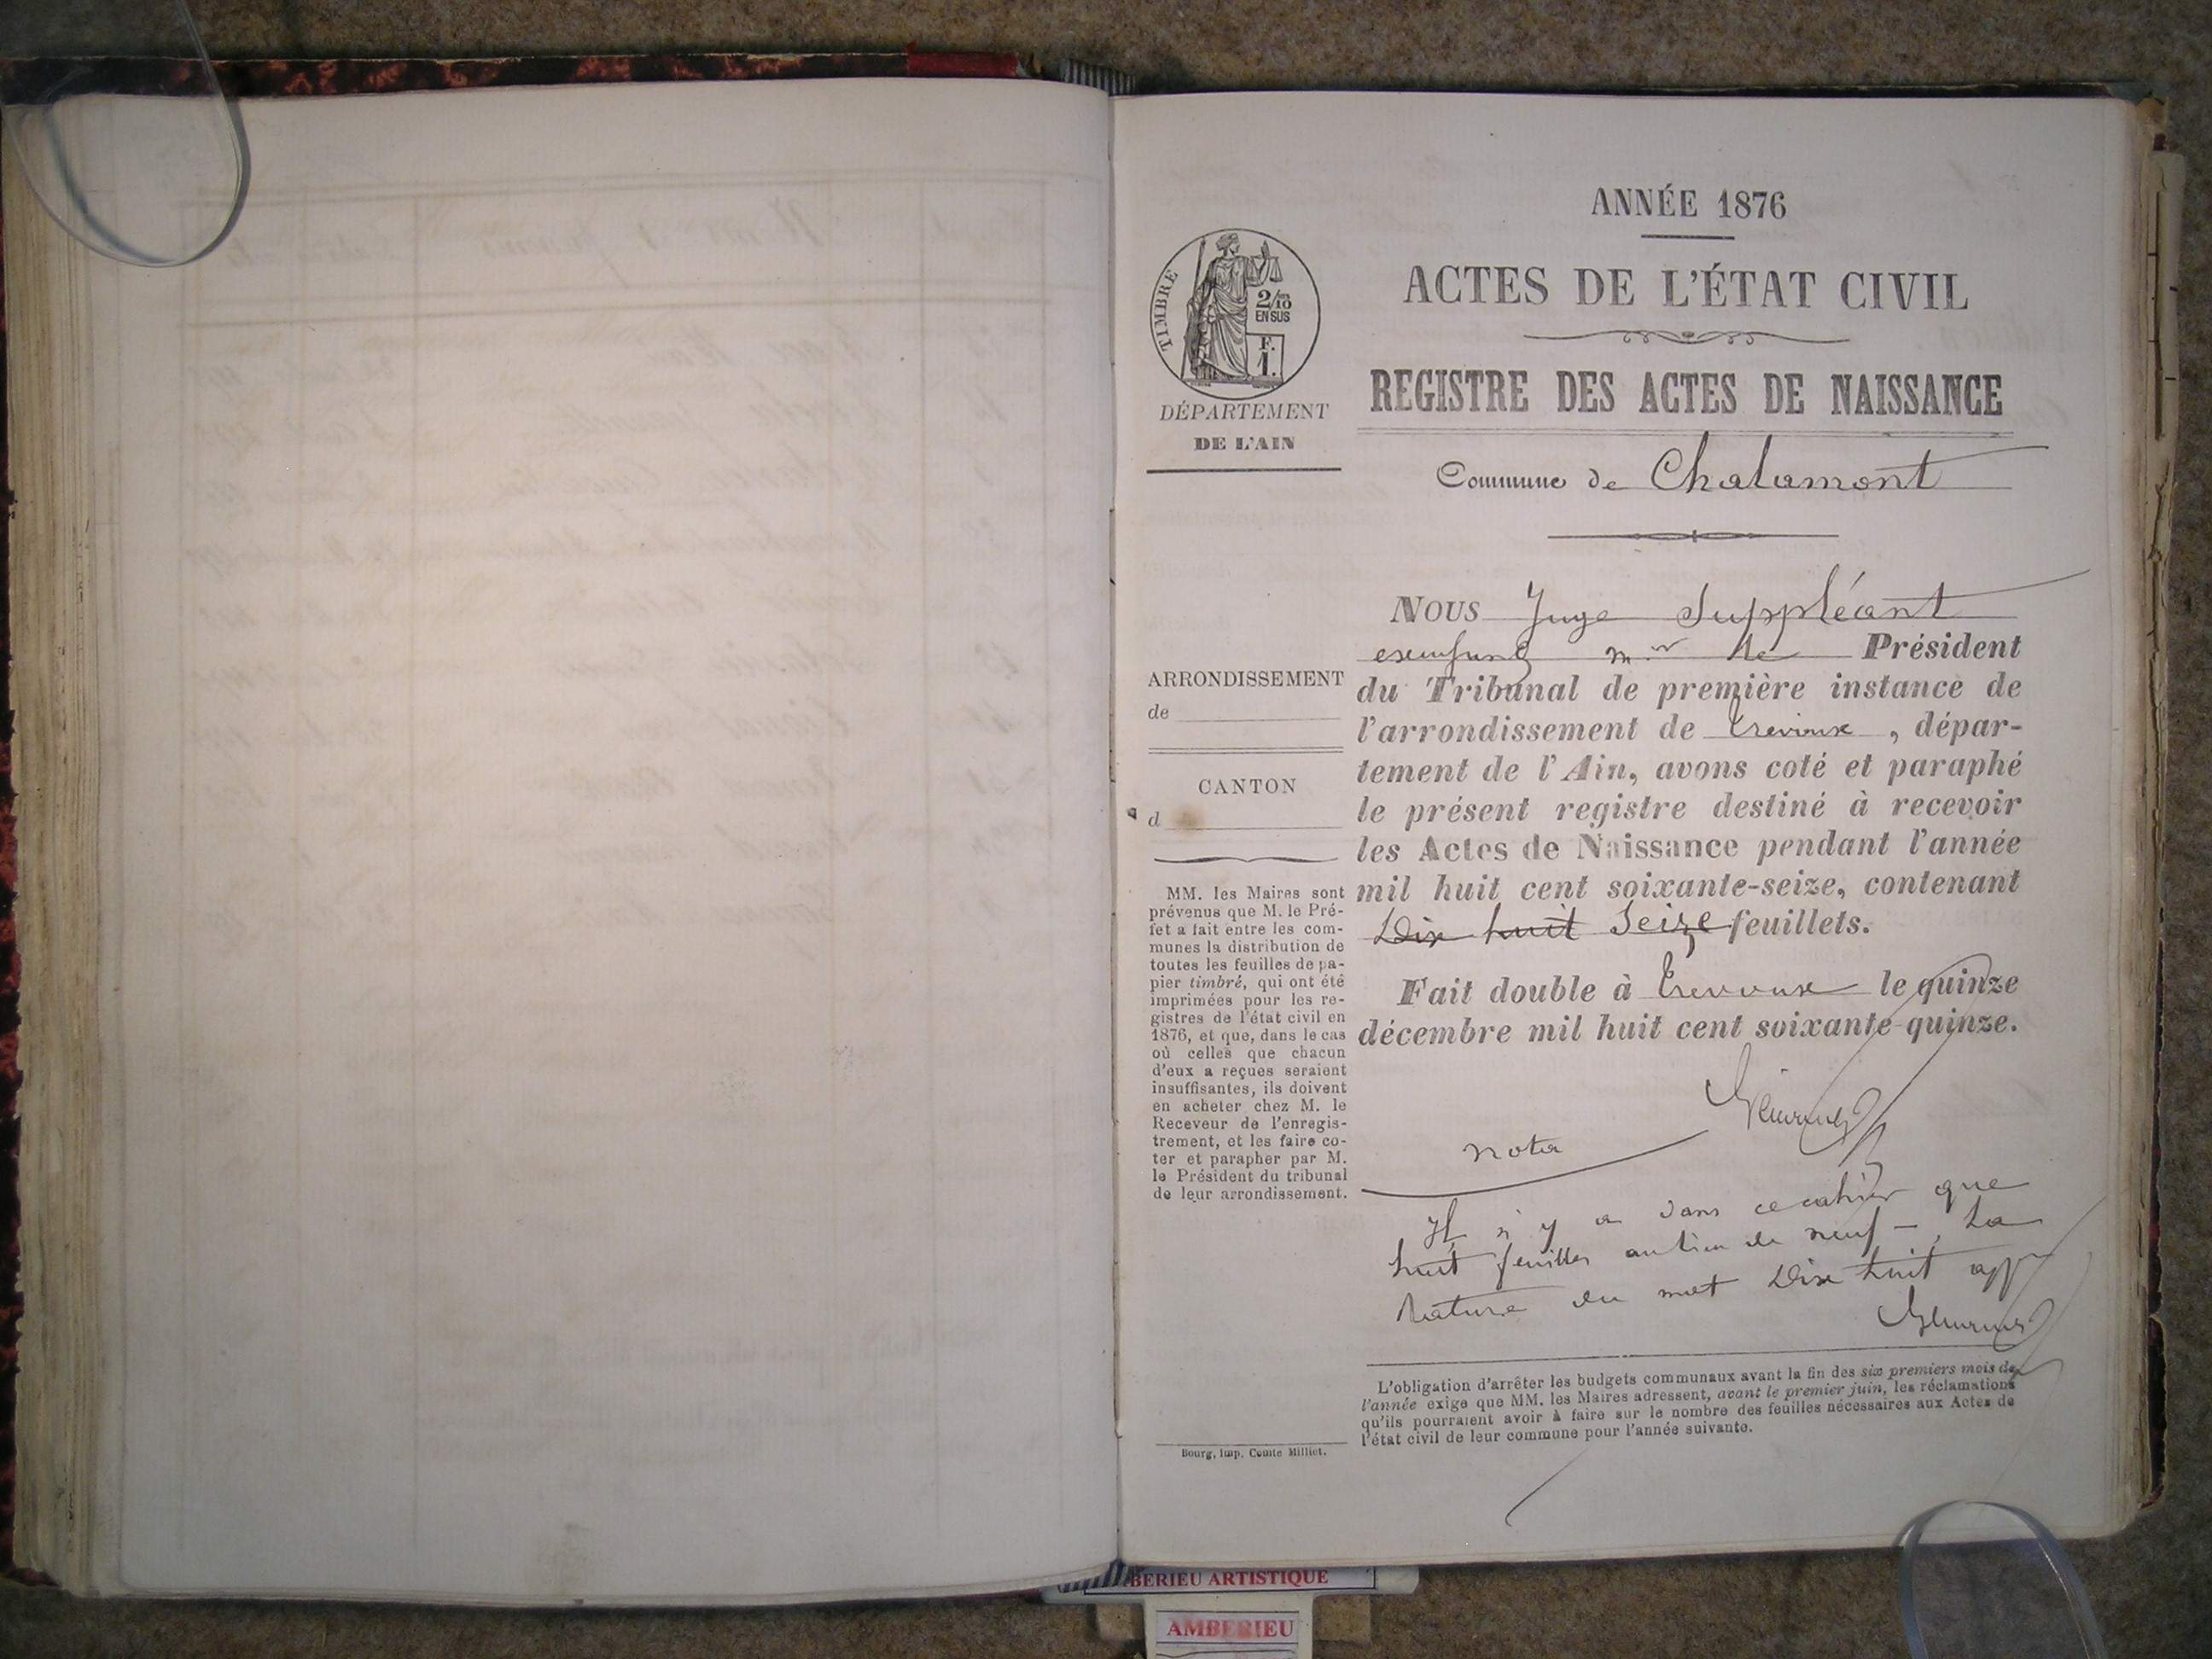 ANNÉE 1876
ACTES DE L'ÉTAT CIVIL
REGISTRE DES ACTES DE NAISSANCE
Commune de Chalamont
TIMBRE
2/10
EN SUS
F.
1.
DÉPARTEMENT
DE L'AIN
ARRONDISSEMENT
de
CANTON
d
MM. les Maires sont
prévenus que M. le Pré-
fet a fait entre les com-
munes la distribution de
toutes les feuilles de pa-
pier timbré, qui ont été
imprimées pour les re-
gistres de l'état civil en
1876, et que, dans le cas
où celles que chacun
d'eux a reçues seraient
insuffisantes, ils doivent
en acheter chez M. le
Receveur de l'enregis-
trement, et les faire co-
ter et parapher par M.
le Président du tribunal
de leur arrondissement.
Bourg, imp. Comte Milliet.
NOUS Juge Suppléant
Mr le Président
du Tribunal de première instance de
l'arrondissement de Trévoux, dépar-
tement de l'Ain, avons coté et paraphé
le présent registre destiné à recevoir
les Actes de Naissance pendant l'année
mil huit cent soixante-seize, contenant
Dix huit Seize feuillets.
Fait double à Trevoux le quinze
décembre mil huit cent soixante-quinze.
nota
Il n'y a dans ce cahier que
huit feuilles au lieu de neuf - La
rature du mot Dix huit app
L'obligation d'arrêter les budgets communaux avant la fin des six premiers mois de
l'année exige que MM. les Maires adressent, avant le premier juin, les réclamations
qu'ils pourraient avoir à faire sur le nombre des feuilles nécessaires aux Actes de
l'état civil de leur commune pour l'année suivante.
BERIEU ARTISTIQUE
AMBERIEU